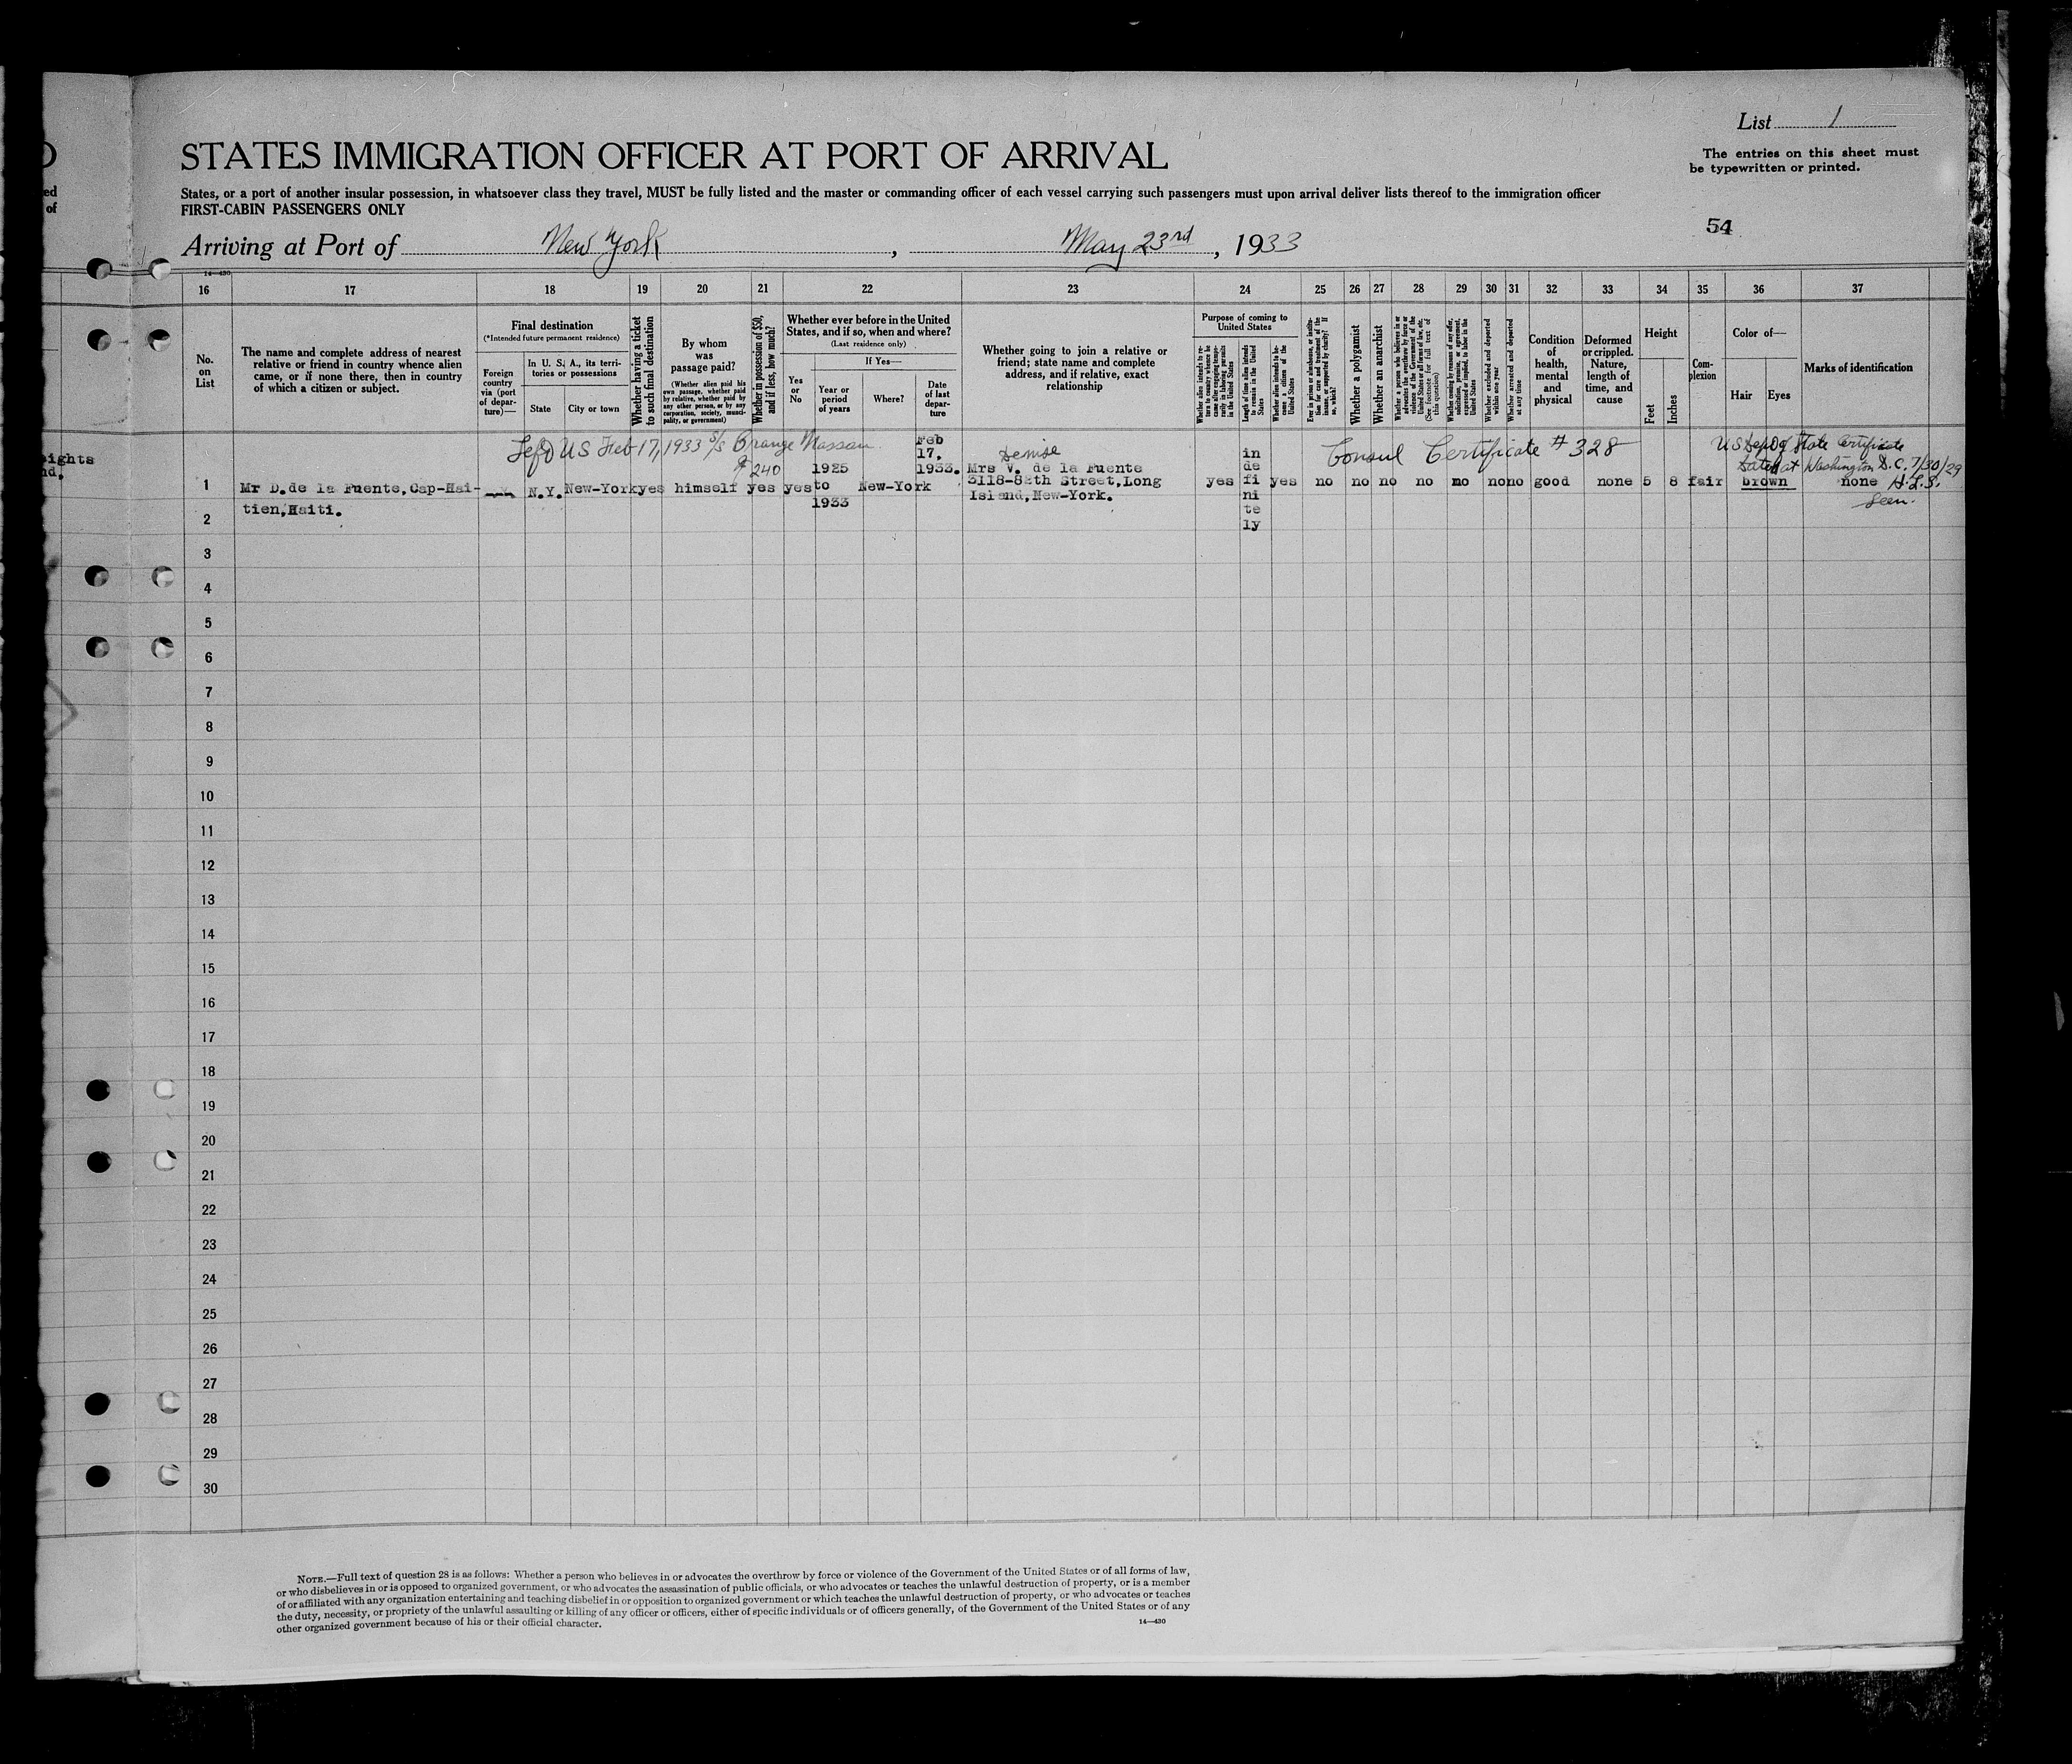 List 1
The entries on this sheet must
be typewritten or printed.
STATES IMMIGRATION OFFICER AT PORT OF ARRIVAL
States, or a port of another insular possession, in whatsoever class they travel, MUST be fully listed and the master or commanding officer of each vessel carrying such passengers must upon arrival deliver lists thereof to the immigration officer
FIRST-CABIN PASSENGERS ONLY
54
Arriving at Port of New York, May 23rd, 1933
14—430
16 17 18 19 20 21 22 23 24 25 26 27 28 29 30 31 32 33 34 35 36 37
No.
on
List
The name and complete address of nearest
relative or friend in country whence alien
came, or if none there, then in country
of which a citizen or subject.
Final destination
(*Intended future permanent residence)
Foreign
country
via (port
of depar-
ture)—
In U. S. A., its terri-
tories or possessions
State
City or town
Whether having a ticket
to such final destination
By whom
was
passage paid?
(Whether alien paid his
own passage, whether paid
by relative, whether paid by
any other person, or by any
corporation, society, munici-
pality, or government)
Whether in possession of $50,
and if less, how much?
Whether ever before in the United
States, and if so, when and where?
(Last residence only)
Yes
or
No
If Yes—
Year or
period
of years
Where?
Date
of last
depar-
ture
Whether going to join a relative or
friend; state name and complete
address, and if relative, exact
relationship
Purpose of coming to
United States
Whether alien intends to re-
turn to country whence he
came after engaging tempo-
rarily in laboring pursuits
in the United States
Length of time alien intends
to remain in the United
States
Whether alien intends to be-
come a citizen of the
United States
Ever in prison or almshouse, or institu-
tion for care and treatment of the
insane, or supported by charity? If
so, which?
Whether a polygamist
Whether an anarchist
(See footnote for full text of
this question)
Whether coming by reason of any offer,
solicitation, promise, or agreement,
expressed or implied, to labor in the
United States
Whether excluded and deported
within one year
Whether arrested and deported
at any time
Condition
of
health,
mental
and
physical
Deformed
or crippled.
Nature,
length of
time, and
cause
Height
Feet
Inches
Com-
plexion
Color of—
Hair
Eyes
Marks of identification
Left US Feb 17, 1933 S/S Orange Nassau
$240
Feb
17,
1933.
Denise
Consul Certificate # 328
US Dept of State Certificate
Dated at Washington D.C. 7/30/29
H.L.S.
seen.
ights
nd.
1 Mr D.de la Fuente,Cap-Hai-
tien,Haiti.
N.Y. New-York yes himself yes yes
1925
to
1933
New-York
Mrs V. de la Fuente
3118-82th Street,Long
Island,New-York.
yes
in
de
fi
ni
te
ly
yes no no no no no no no good none 5 8 fair brown none
2
3
4
5
6
7
8
9
10
11
12
13
14
15
16
17
18
19
20
21
22
23
24
25
26
27
28
29
30
NOTE.—Full text of question 28 is as follows: Whether a person who believes in or advocates the overthrow by force or violence of the Government of the United States or of all forms of law,
or who disbelieves in or is opposed to organized government, or who advocates the assassination of public officials, or who advocates or teaches the unlawful destruction of property, or is a member
of or affiliated with any organization entertaining and teaching disbelief in or opposition to organized government or which teaches the unlawful destruction of property, or who advocates or teaches
the duty, necessity, or propriety of the unlawful assaulting or killing of any officer or officers, either of specific individuals or of officers generally, of the Government of the United States or of any
other organized government because of his or their official character.
14—430